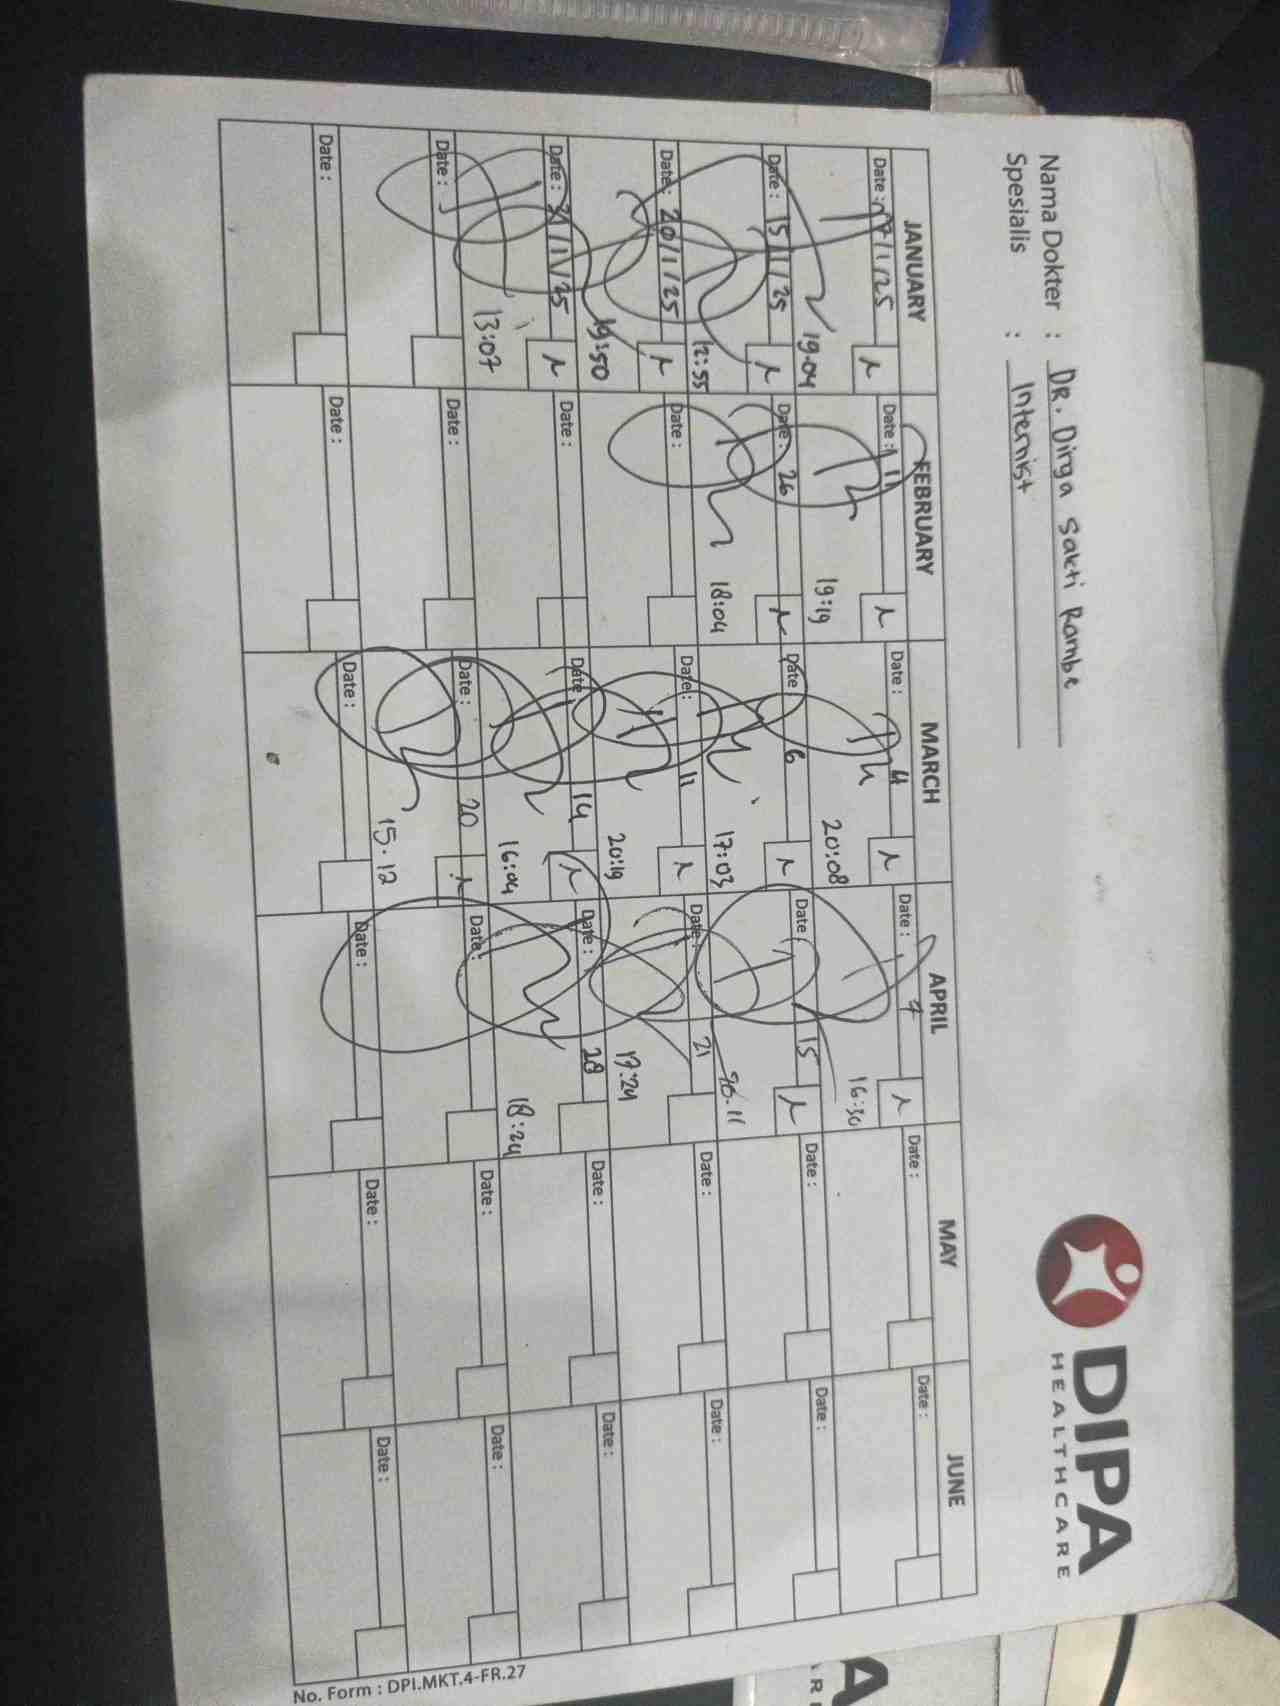 Nama Dokter : DR. Dirga Sakti Rambe
Spesialis : Internist
DIPA
HEALTHCARE
JANUARY FEBRUARY MARCH APRIL MAY JUNE
Date : 7/1/25 Date : 11 Date : 4 Date : 7 Date : Date :
19.04 19:19 20:08 16:30
Date : 15/1/25 Date : 26 Date : 6 Date : 15 Date : Date :
12:55 18:04 17:03
Date : 20/1/25 Date : Date : 11 Date : 21 Date : Date :
19:50 20:19 17:24
Date : 21/1/25 Date : Date : 14 Date : 28 Date : Date :
13:07 16:04 18:24
Date : Date : Date : 20 Date : Date : Date :
15.12
Date : Date : Date : Date : Date : Date :
No. Form : DPI.MKT.4-FR.27